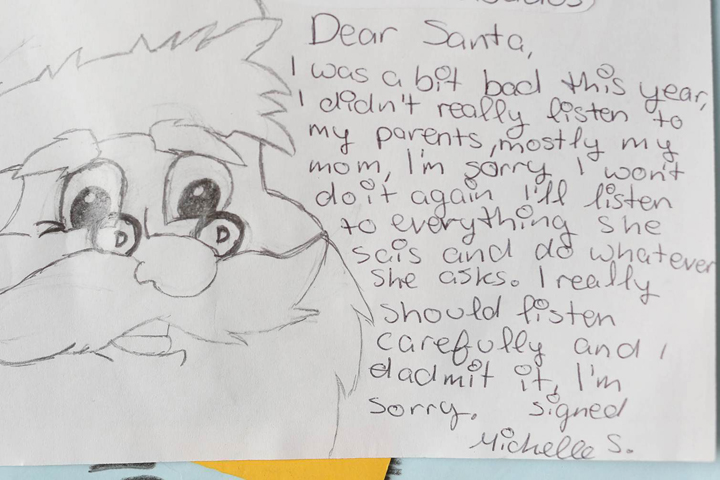 Dear Santa,
I was a bit bad this year,
I didn't really listen to
my parents, mostly my
mom, I'm sorry I won't
do it again I'll listen
to everything she
sais and do whatever
she asks. I really
should listen
carefully and I
admit it, I'm
sorry. signed
Michelle S.